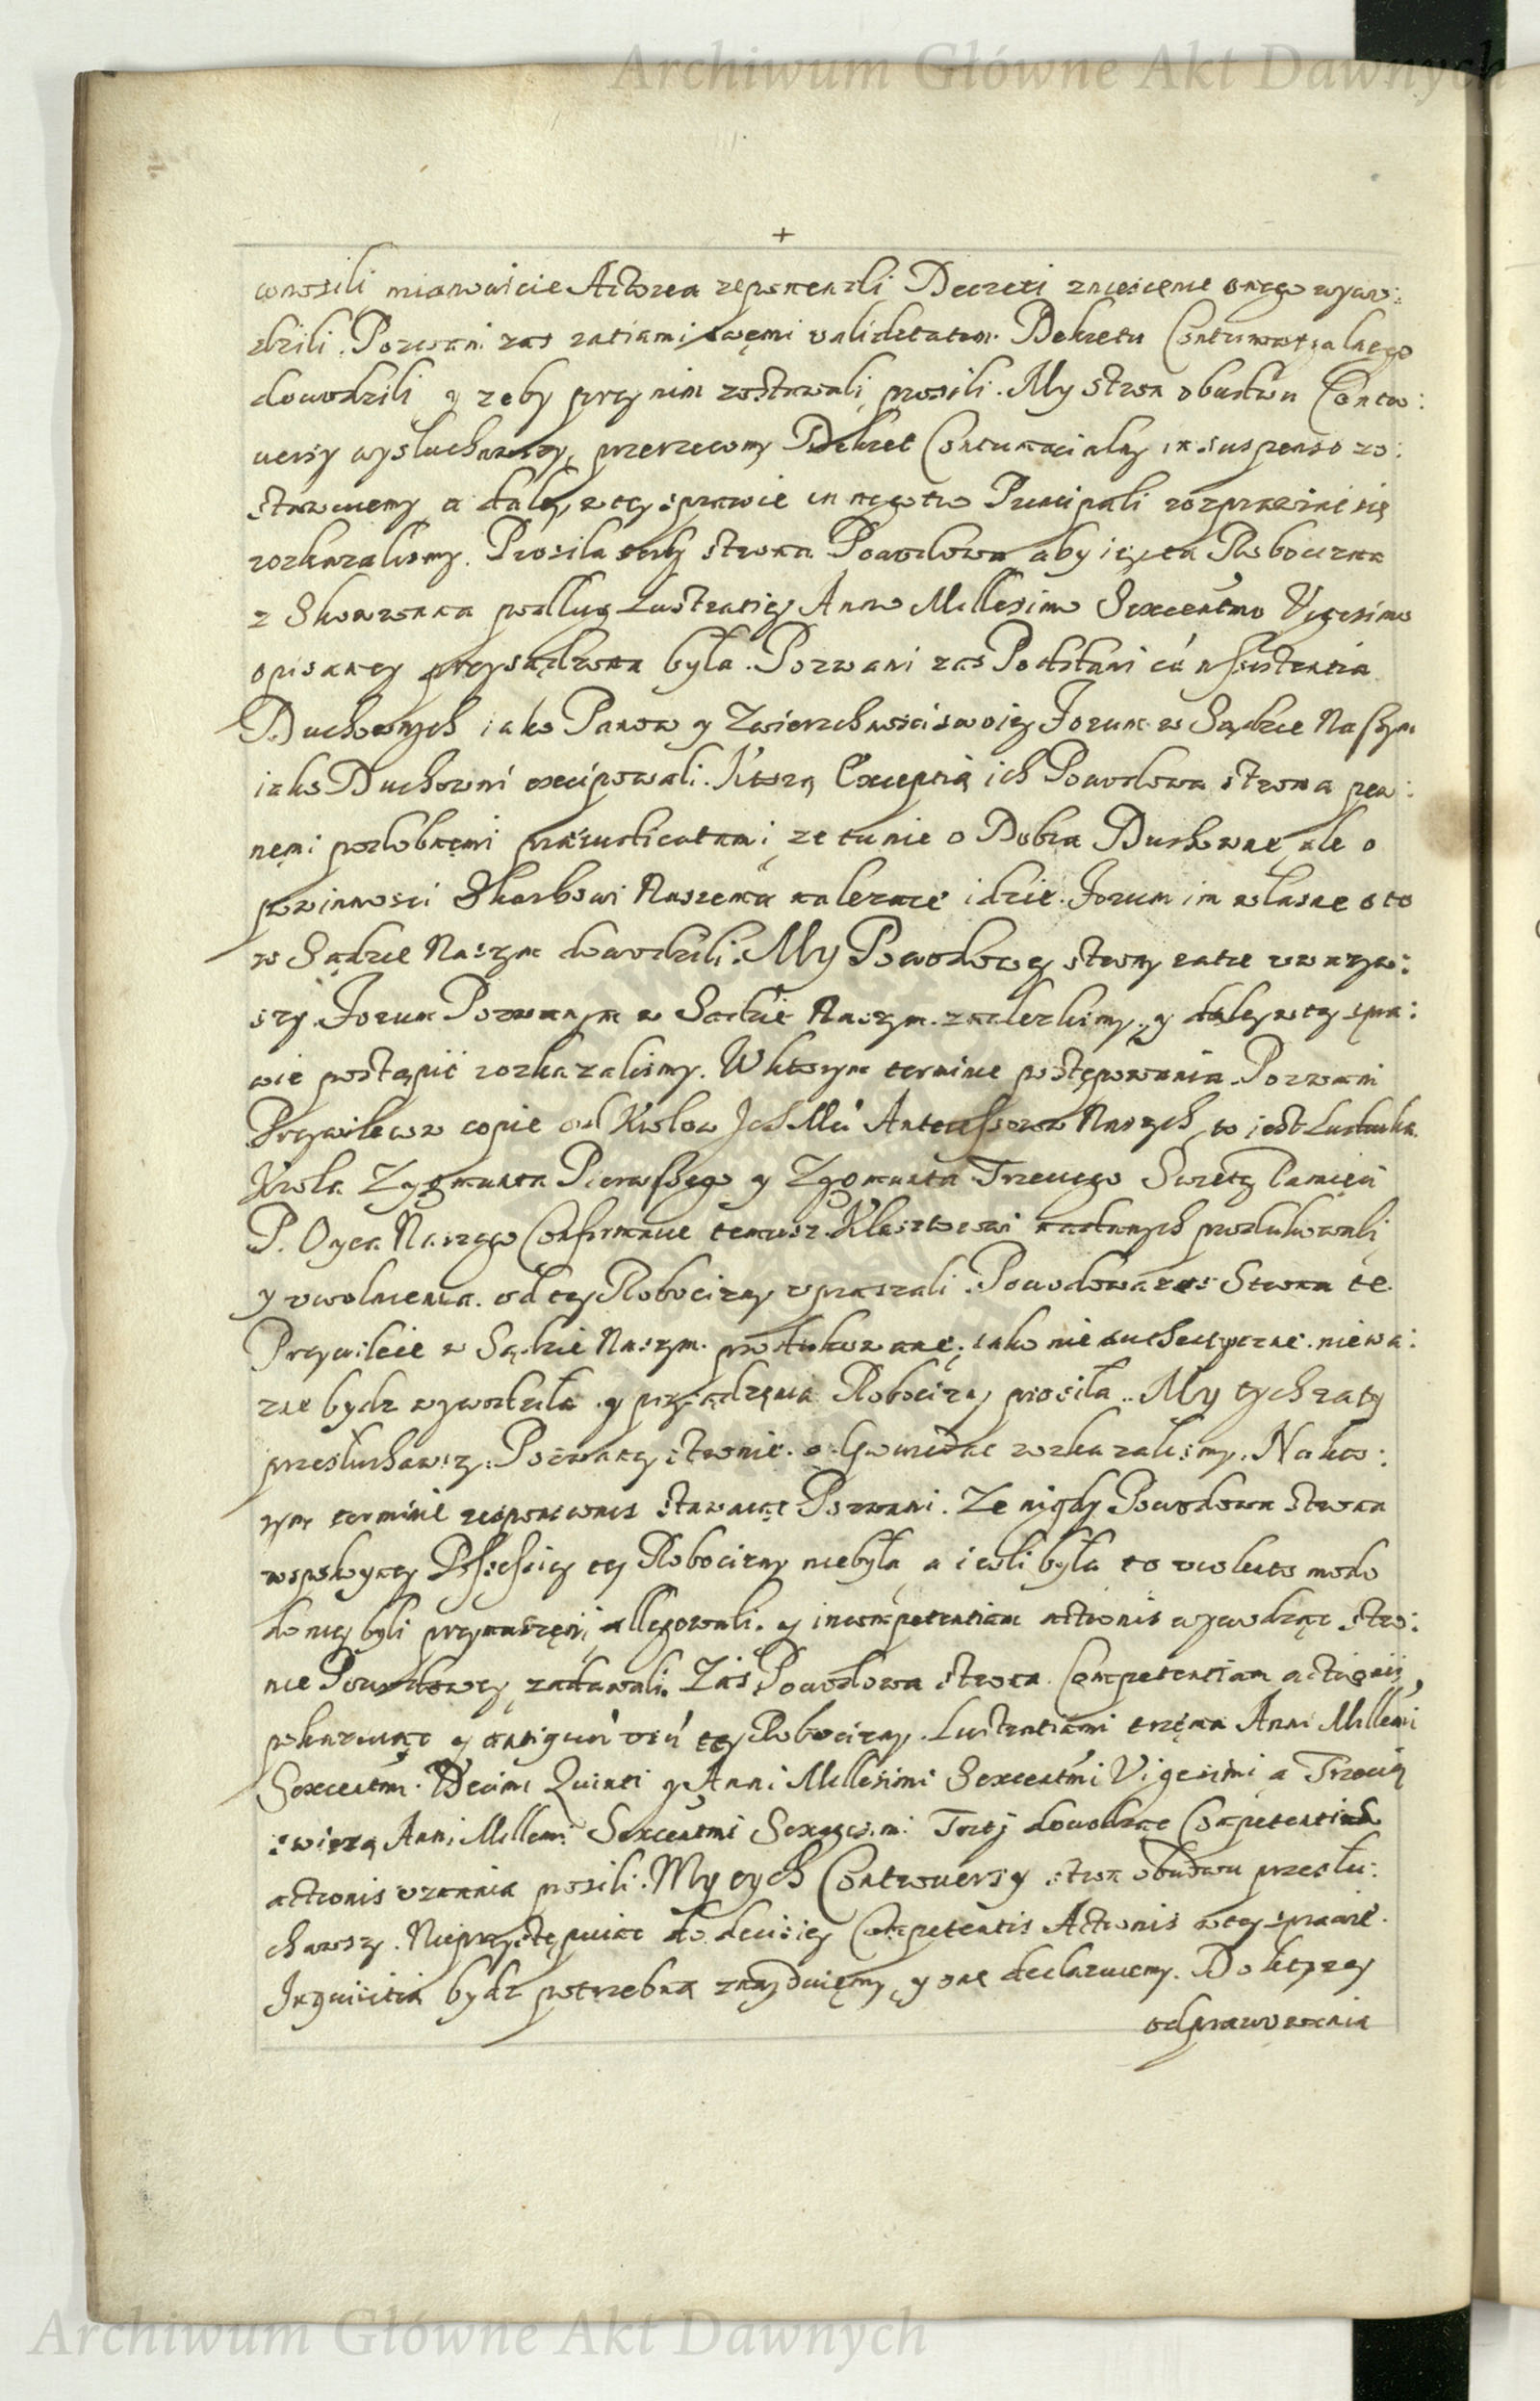 Archiwum Główne Akt Dawnych
+
wnosili mianowicie Actorea reponendi Decreti zniesienie onego wywo:
dzili. Pozwani zas ratiami swęmi validitatem Dekretu Contumatialnego
dowodzili y zeby przy nim zostawali prosili. My stron obudwu Contro:
uersy wysłuchawszy, przerzeczony Dekret Contumacialny in suspenso zo:
stawuiemy a daley w tey sprawie in negotio Principali rozprawić się
rozkazalismy. Prosiła tedy strona Powodowa aby iey ta Robocizna
z Skowronka podług Lustratiey Anno Millesimo Sexcentmo Vigesimo
opisaney przysądzona była. Pozwani zas Poddani cum assistentia
Duchownych iako Panow y Zwierzchności swoiey Forum w Sądzie Naszym
iako Duchowni excipowali. Ktorą Exceptią ich Powodowa strona pew:
nęmi podobnęmi ze tu nie o Dobra Duchowne, ale o
powinnosci Skarbowi Naszemu należące idzie. Forum im własne o to
w Sądzie Naszym dowodzili. My Powodowey strony ratie uwazyw:
szy Forum Pozwanym w Sądzie Naszym znalezlismy, y daley w tey spra:
wie postąpić rozkazalismy. W ktorym terminie postępowania Pozwani
Przywileiow copie od Krolow Ich Mći Antecessorow Naszych, to iest Ludwika
Krola Zygmunta Pierwszego y Zygmunta Trzeciego Swiętey Pamięci
P. Oyca Naszego Confirmacie temusz Klasztorowi nadanych produkowali
y uwolnienia od tey Robocizny upraszali. Powodowa zas Strona te
Przywileie w Sądzie Naszym produkowane, iako nie authentyczne niewa:
zne bydz wywodziła y przysądzęnia Robocizny prosiła. My tych raty
przesłuchawszy Pozwaney stronie rozkazalismy. Na kto:
rym terminie responsiones stawaiąc Pozwani. Ze nigdy Powodowa Strona
w spokoyney Possessiey tey Robocizny niebyła, a iesli była to violento modo
do niey byli przymuszęni, allegowali. y incompetentiam actionis wywodząc stro:
nie Powodowey zadawali. Zas Powodowa strona Competentiam actionis
pokazuiąc y tey Robocizny Lustratiami trzęma Anni Millemi
Sexcentmi Decimi Quinti y Anni Millesimi Sexcentmi Vigesimi a Trzecią
swiezą Anni Millemi Sexcentmi Sexagesimi Tertij dowodząc Competentiad
actionis uznania prosili. My tych Controuersy stron obudwu przesłu:
chawszy. Nieprzystępuiąc do decisiey Competentis Actionis w tey sprawie
Inquisitia bydz potrzebna znayduięmy, y onę declaruiemy. Do ktorey
odprawowania
Archiwum Główne Akt Dawnych